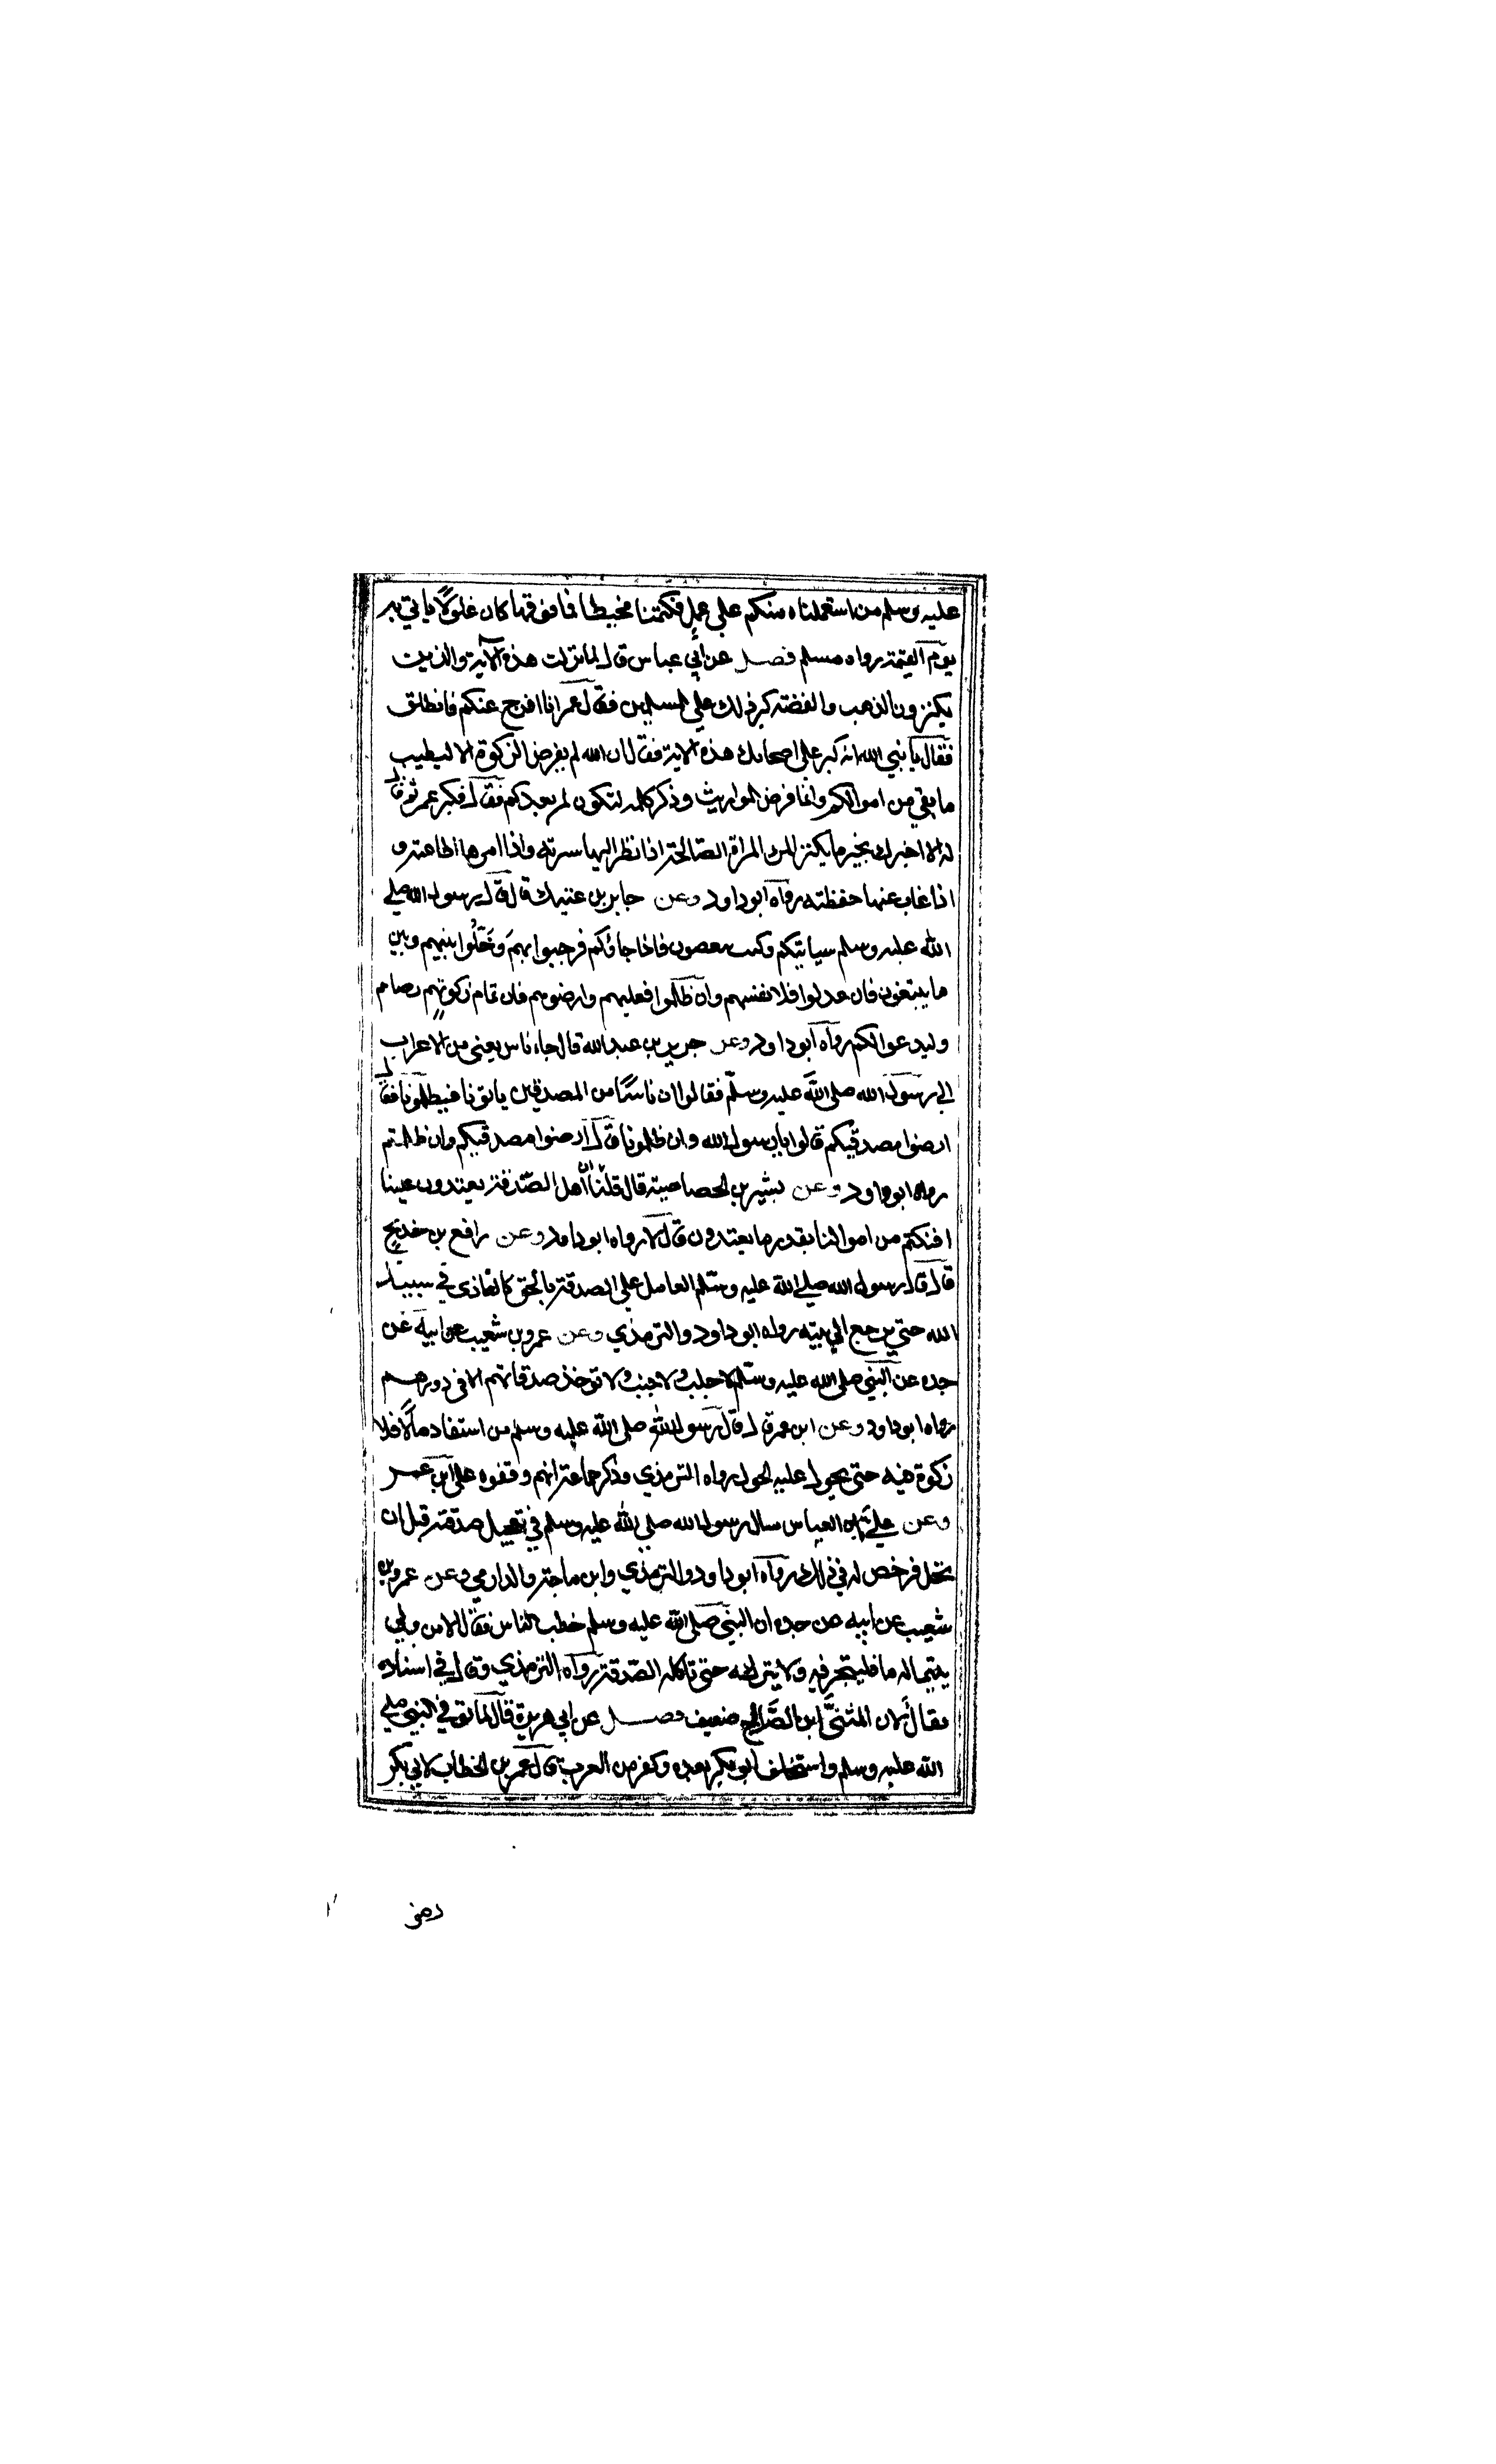 عليه وسلم من استعملناه منكم علي عمل فكتمنا مخيطا فما فوقها كان غلولًا ياتي به
يوم القيمة رواه مسلم فصل عن ابي عباس قال لما نزلت هذه الآية والذين
يكنزون الذهب والفضة كبر ذلك علي المسلمين فقال عمر انا افرج عنكم فانطلق
فقال يا نبي الله انه كبر علي اصحابك هذه الاية فقال ان الله لم يفرض الزكوة الا ليطيب
ما بقي من اموالكم وانما فرض المواريث وذكر كلمه لتكون لمن بعدكم فقال فكبر عمر ثم قال
له الا اخبرك بخير ما يكنز المرء المراة الصالحة اذا نظر اليها سرته واذا امرها اطاعته و
اذا غاب عنها حفظته رواه ابو داود وعن جابر بن عتيك قال قال رسول الله صلي
الله عليه وسلم سياتيكم ركب مبغضون فاذا جاؤكم فرحبوا بهم وخلوا بينهم وبين
ما يبتغون فان عدلوا فلانفسهم وان ظلموا فعليهم وارضوهم فان تمام زكوتهم رضاهم
وليدعوا لكم رواه ابو داود وعن جرير بن عبد الله قال جاء ناس يعني من الاعراب
الي رسول الله صلي الله عليه وسلم فقالوا ان ناسًا من المصدقين ياتونا فيظلمونا فقال
ارضوا مصدقيكم قالوا يا رسول الله وان ظلمونا قال ارضوا مصدقيكم وان ظلمتم
رواه ابو داود وعن بشير بن الخصاصية قال قلنا ان اهل الصدقة يعتدون علينا
افنكتم من اموالنا بقدر ما يعتدون قال لا رواه ابو داود وعن رافع بن خديج
قال قال رسول الله صلي الله عليه وسلم العامل علي الصدقة بالحق كالغازي في سبيل
الله حتي يرجع الي بيته رواه ابو داود والترمذي وعن عمرو بن شعيب عن ابيه عن
جده عن النبي صلي الله عليه وسلم لا جلب ولا جنب ولا توخذ صدقاتهم الا في دورهم
رواه ابو داود وعن ابن عمر قال قال رسول الله صلي الله عليه وسلم من استفاد مالًا فلا
زكوة فيه حتي يحول عليه الحول رواه الترمذي وذكر جماعة انهم وقفوه علي ابن عمر
وعن علي ان العباس سال رسول الله صلي الله عليه وسلم في تعجيل صدقته قبل ان
تحل فرخص له في ذلك رواه ابو داود والترمذي وابن ماجة والدارمي وعن عمرو بن
شعيب عن ابيه عن جده ان النبي صلي الله عليه وسلم خطب الناس فقال الا من ولي
يتيما له ما فليتجر فيه ولا يتركه حتي تاكله الصدقة رواه الترمذي وقال في اسناده
مقال لان المثني ابن الصالح ضعيف فصل عن ابي هريرة قال لما توفي النبي صلي
الله عليه وسلم واستخلف ابو بكر بعده وكفر من العرب قال عمر بن الخطاب لابي بكر
رضي